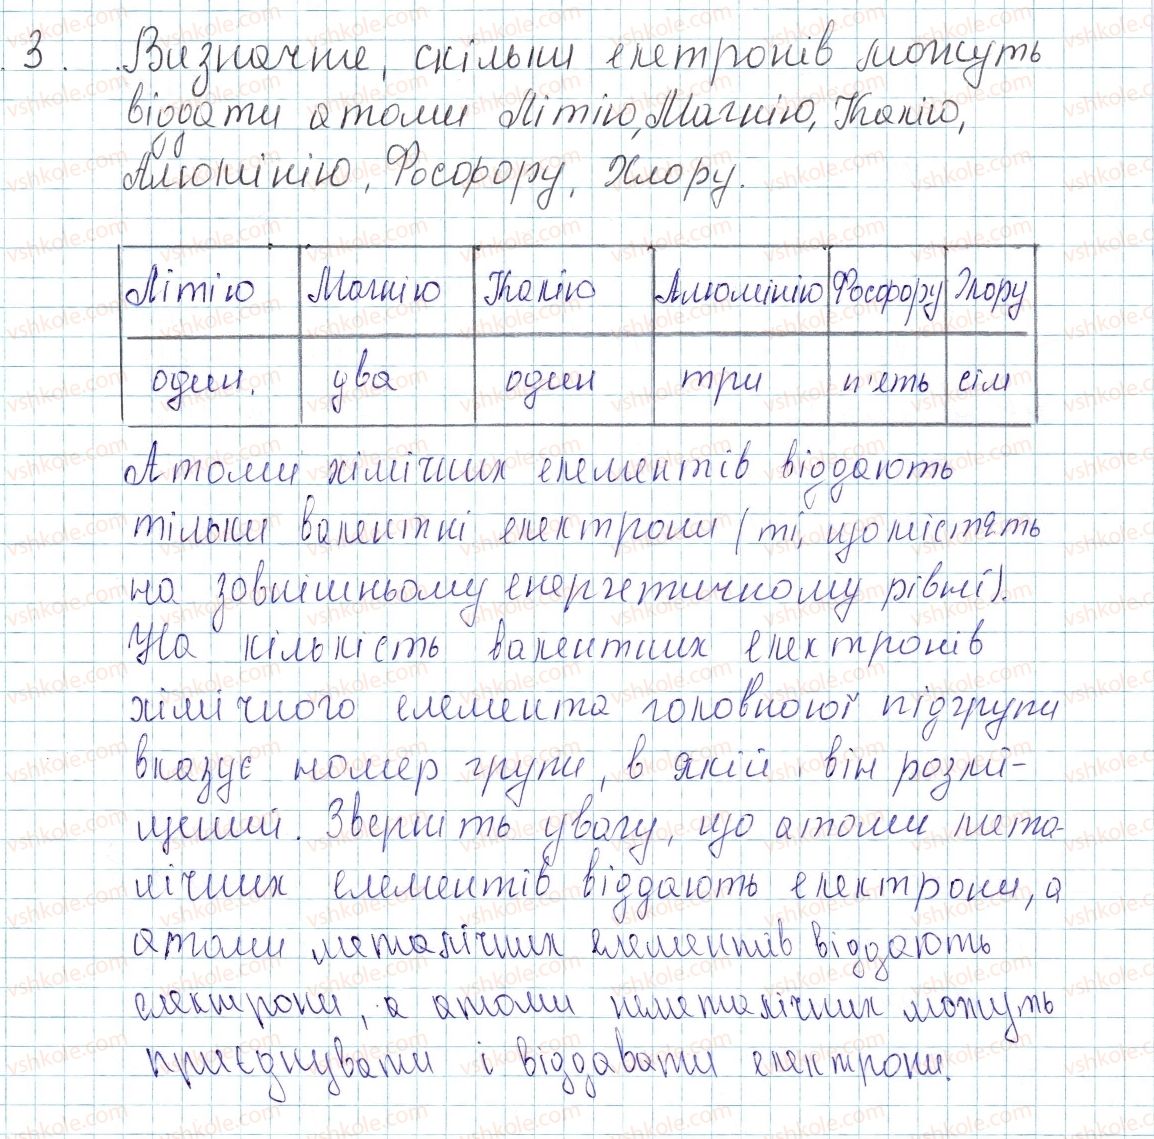 3. Визначте, скільки елетронів можуть
віддати атоми Літію, Магнію, Калію,
Алюмінію, Фосфору, Хлору.
Літію Магнію Калію Алюмінію Фосфору Хлору
один. два один три п'ять сім
Атоми хімічних елементів віддають
тільки валентні електрони (ті, що містять
на зовнішньому енергетичному рівні).
На кількість валентних електронів
хімічного елемента головної підгрупи
вказує номер групи, в якій він розмі-
щений. Зверніть увагу, що атоми мета-
лічних елементів віддають електрони, а
атоми металічних елементів віддають
електрони, а атоми неметалічних можуть
приєднувати і віддавати електрони.